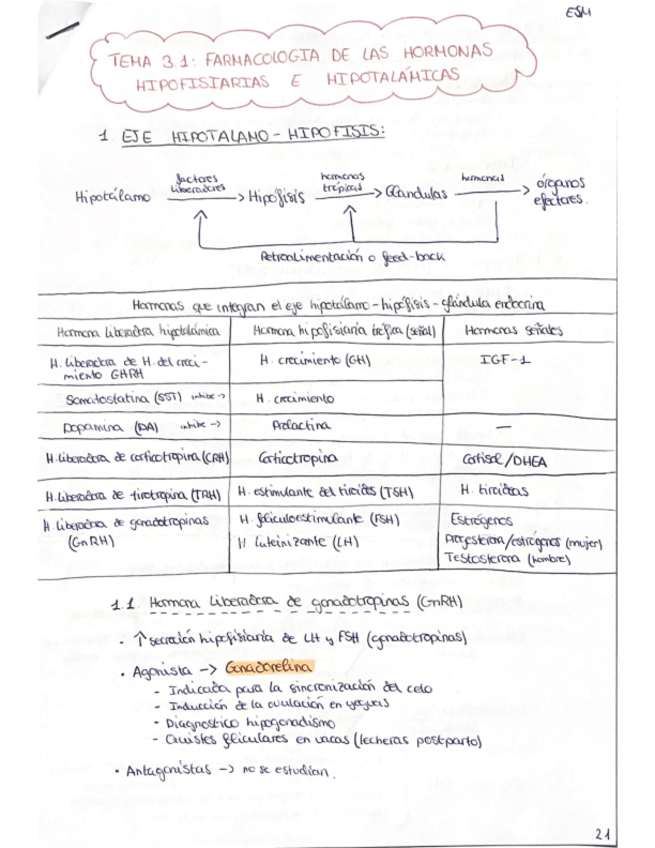 ESM
TEMA 3.1: FARMACOLOGIA DE LAS HORMONAS
HIPOFISIARIAS E HIPOTALÁMICAS
1 EJE HIPOTALAMO-HIPOFISIS:
Hipotálamo factores liberadores -> Hipófisis hormonas trópicas -> Glándulas hormonas -> órganos efectores.
Retroalimentación o feed-back
Hormonas que integran el eje hipotálamo-hipófisis-glándula endocrina
Hormona liberadora hipotalámica Hormona hipofisiaria trófica (señal) Hormonas señales
H. liberadora de H. del creci-
miento GHRH H. crecimiento (GH) IGF-1
Somatostatina (SST) inhibe -> H. crecimiento
Dopamina (DA) inhibe -> Prolactina —
H. liberadora de corticotropina (CRH) Corticotropina Cortisol/DHEA
H. liberadora de tirotropina (TRH) H. estimulante del tiroides (TSH) H. tiroideas
H liberadora de gonadotropinas
(GnRH)
H. foliculoestimulante (FSH) Estrógenos
H luteinizante (LH) Progesterona/estrógenos (mujer)
Testosterona (hombre)
1.1. Hormona liberadora de gonadotropinas (GnRH)
· ↑ secreción hipofisiaria de LH y FSH (gonadotropinas)
· Agonista -> Gonadorelina
- Indicada para la sincronización del celo
- Inducción de la ovulación en yeguas
- Diagnostico hipogonadismo
- Quistes foliculares en vacas (lecheras postparto)
· Antagonistas -> no se estudian.
21